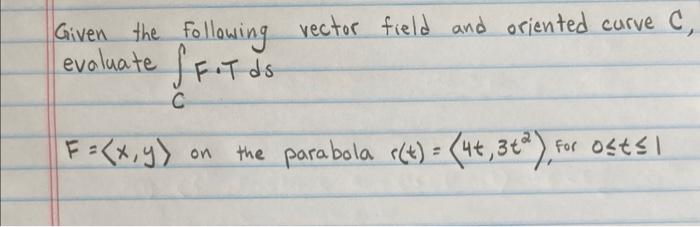 Given the following vector field and oriented curve C,
evaluate ∫_C F·T ds
F = ⟨x, y⟩ on the parabola r(t) = ⟨4t, 3t²⟩, for 0≤t≤1